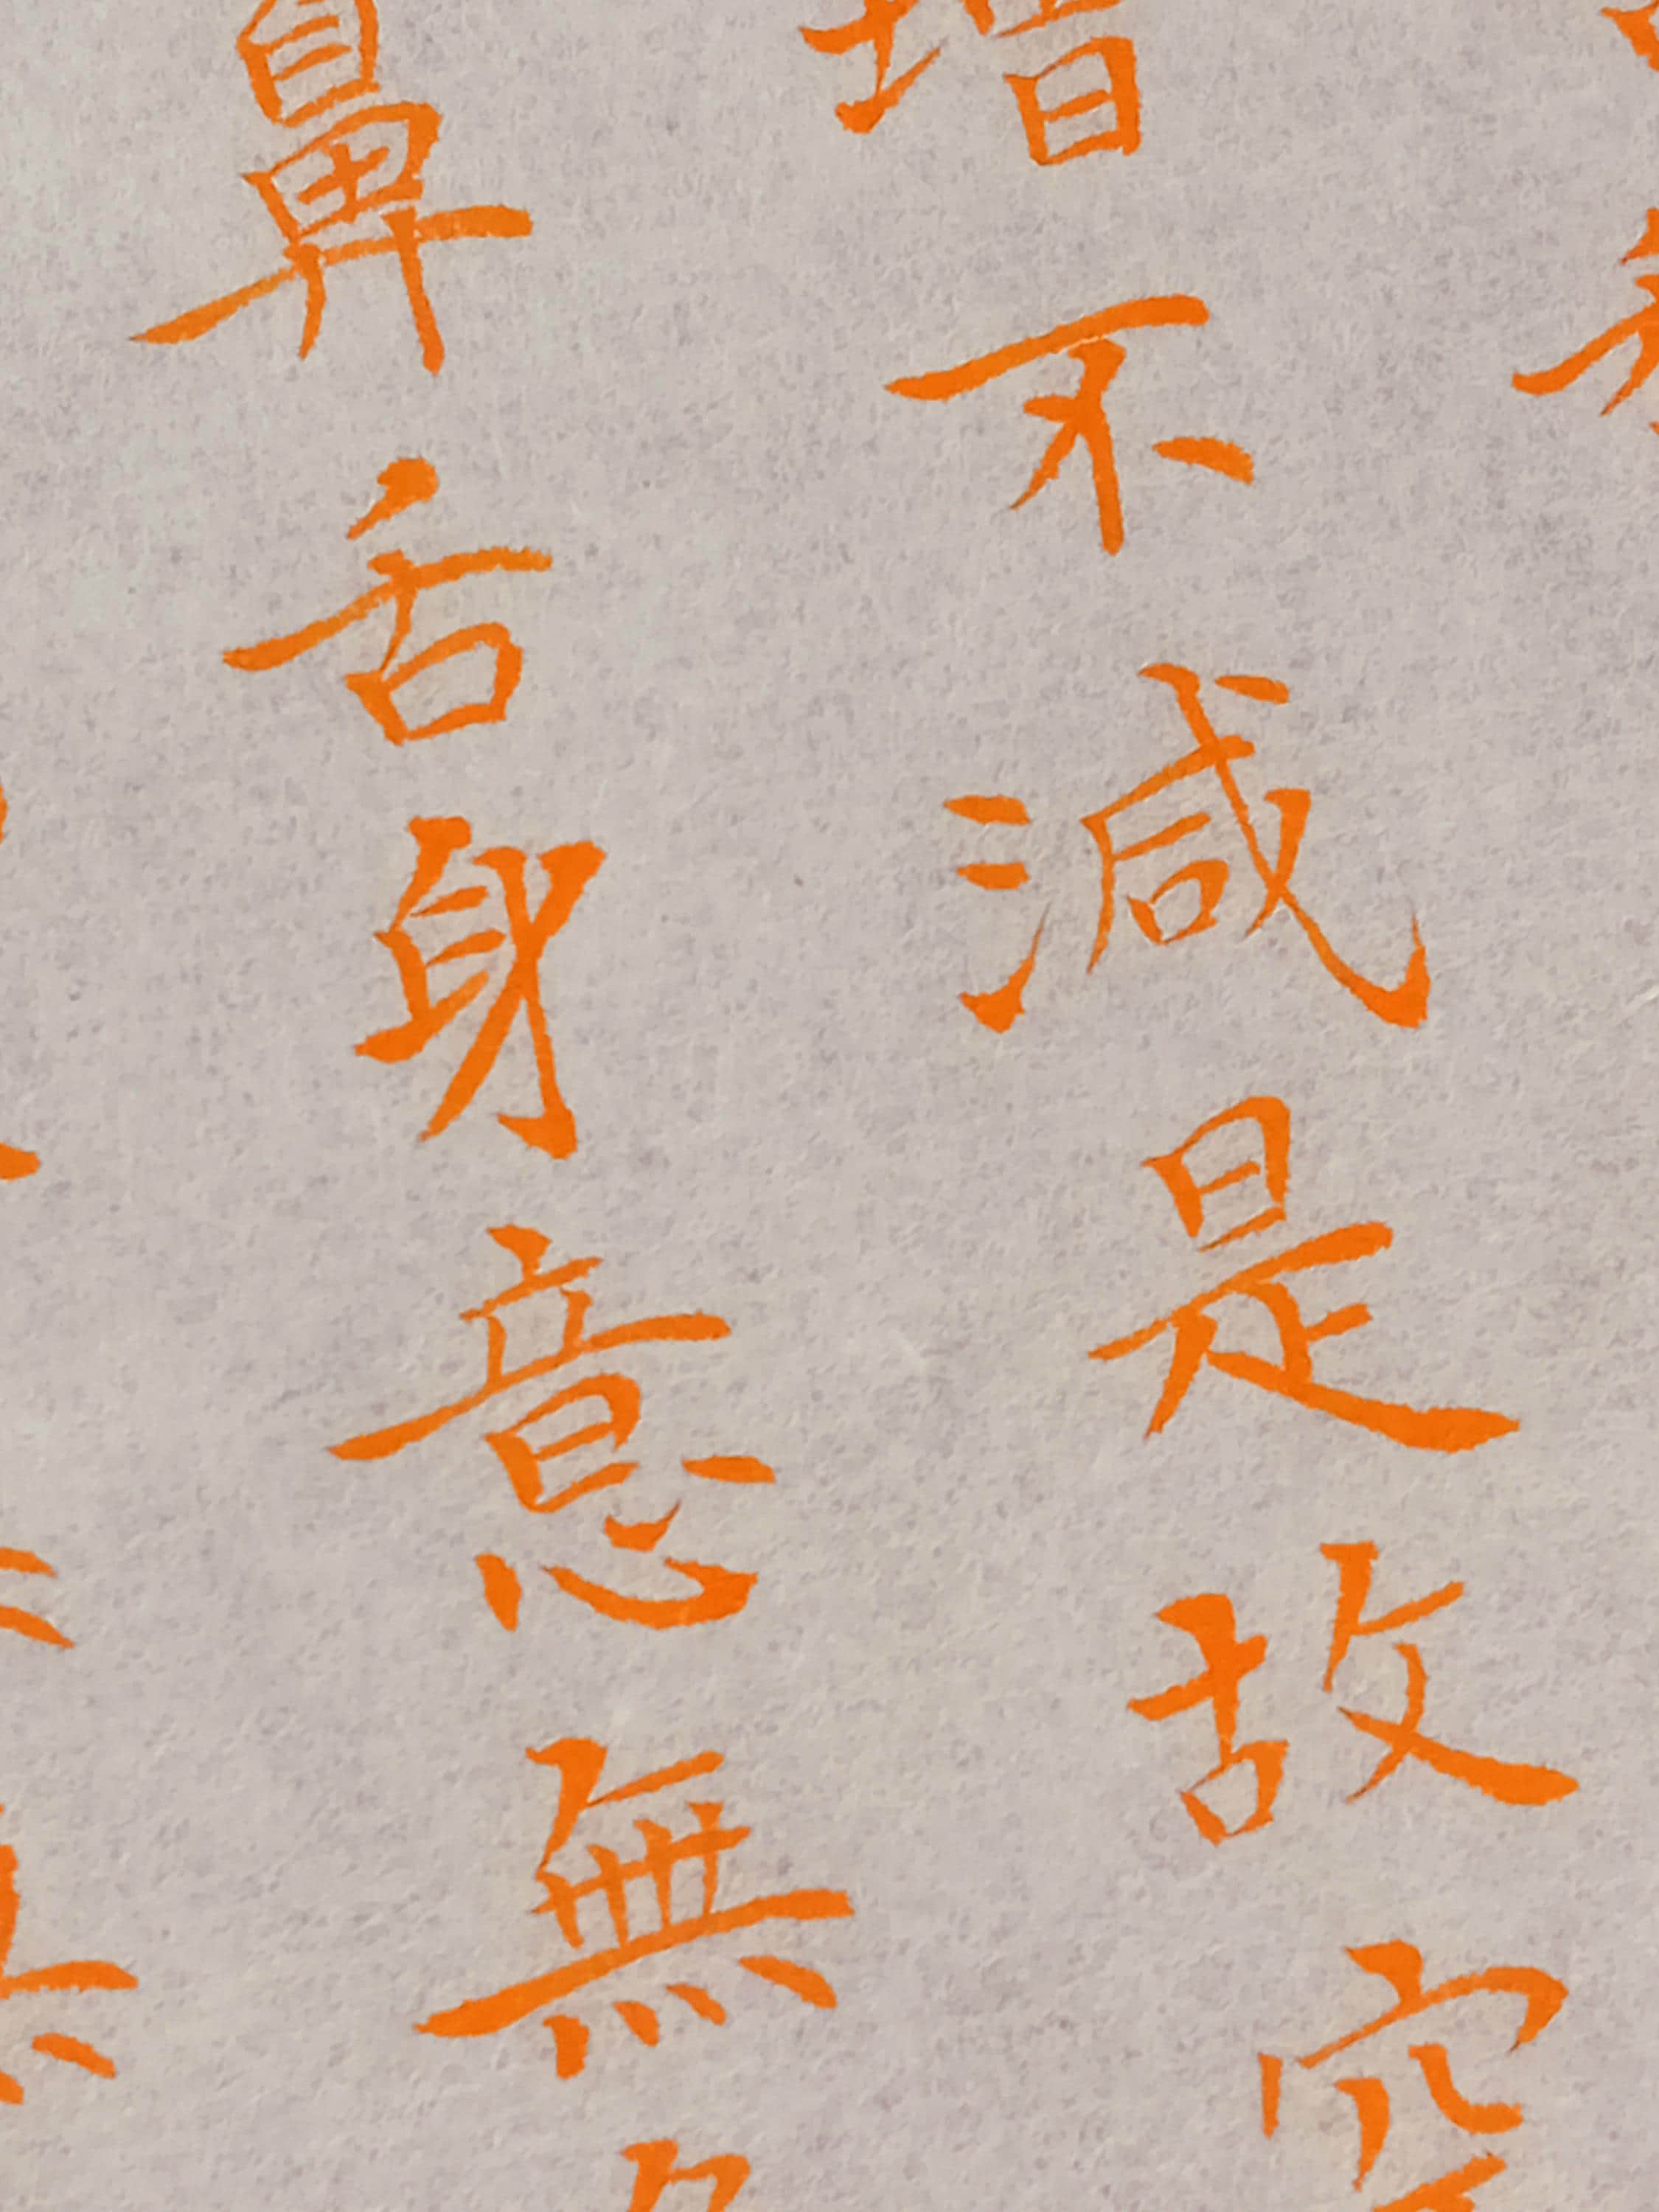 增不減是故空
鼻舌身意無